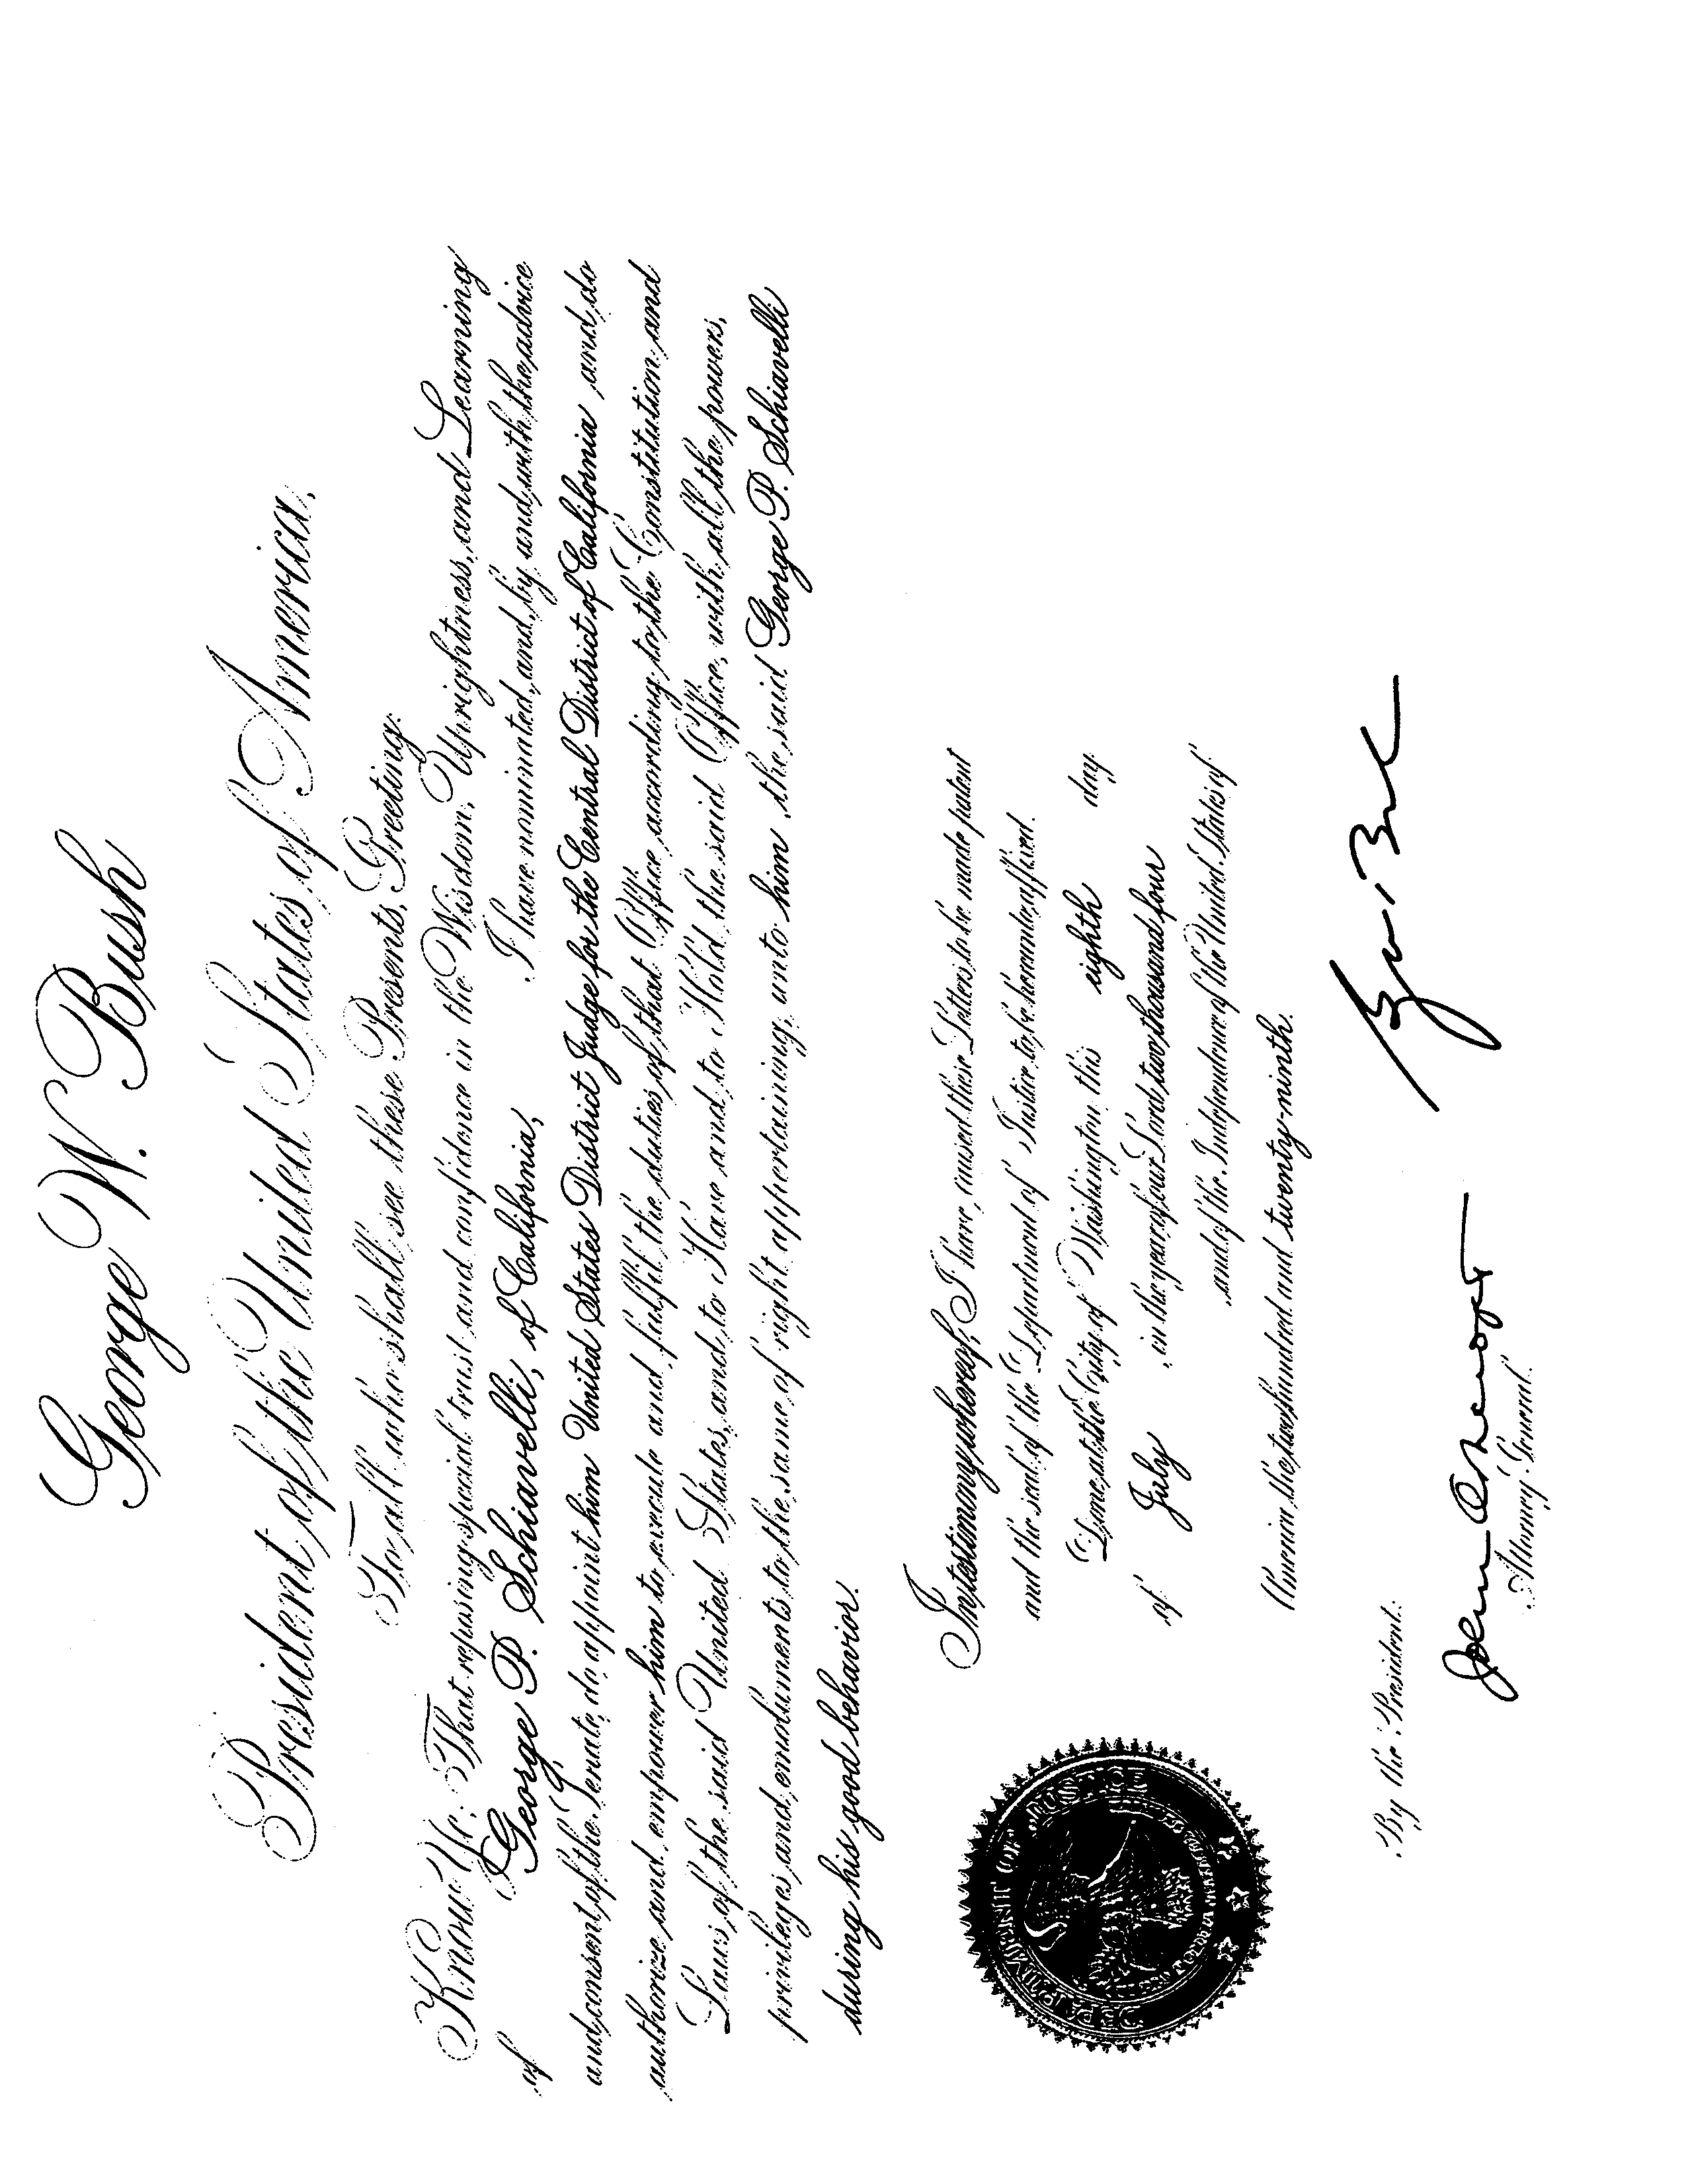 George W. Bush
President of the United States of America,
To all who shall see these Presents, Greeting:
Know Ye: That reposing special trust and confidence in the Wisdom, Uprightness, and Learning
of George P. Schiavelli, of California, I have nominated, and, by and with the advice
and consent of the Senate, do appoint him United States District Judge for the Central District of California and do
authorize and empower him to execute and fulfil the duties of that Office according to the Constitution and
Laws of the said United States, and to Have and to Hold the said Office, with all the powers,
privileges, and emoluments to the same of right appertaining, unto him the said George P. Schiavelli
during his good behavior.
In testimony whereof, I have caused these Letters to be made patent
and the seal of the Department of Justice to be hereunto affixed.
Done at the City of Washington this eighth day
of July in the year of our Lord two thousand four
and of the Independence of the United States of
America the two hundred and twenty-ninth.
DEPARTMENT OF JUSTICE
George Bush
By the President:
John Ashcroft
Attorney General.